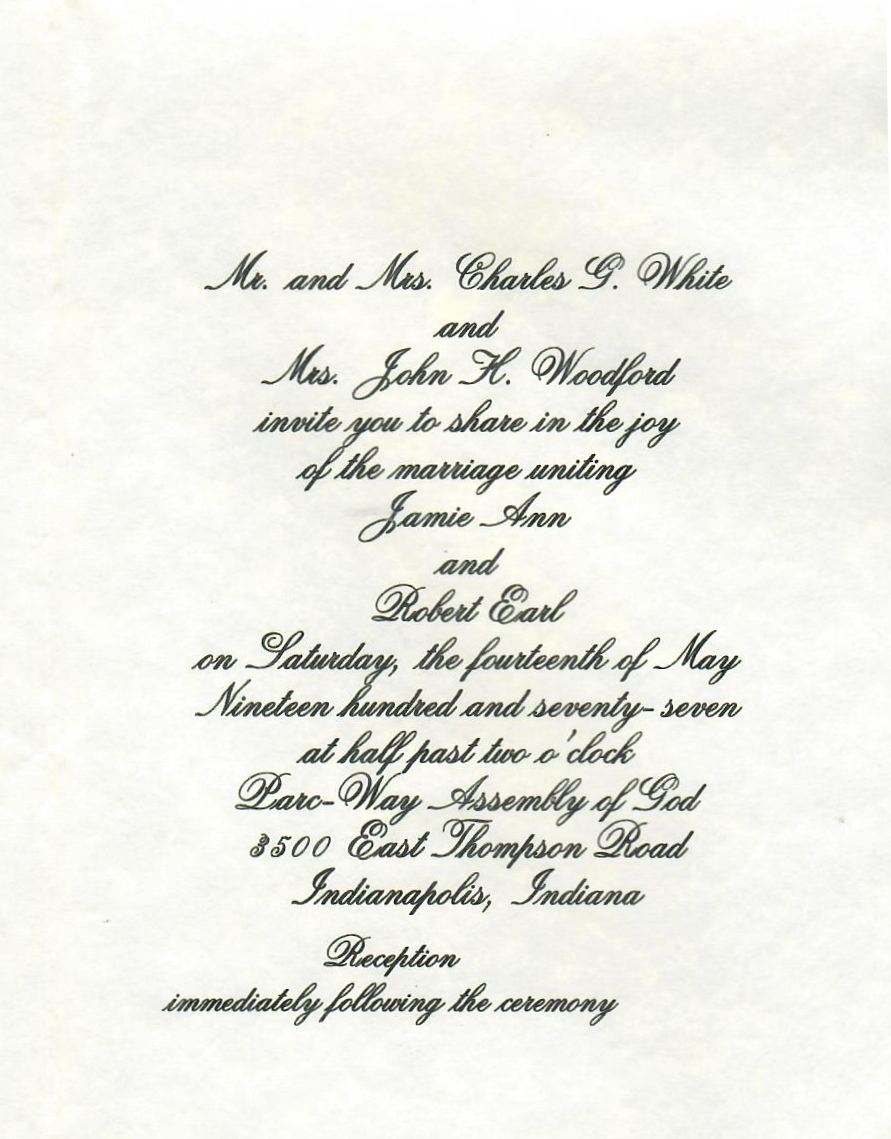 Mr. and Mrs. Charles G. White
and
Mrs. John H. Woodford
invite you to share in the joy
of the marriage uniting
Jamie Ann
and
Robert Earl
on Saturday, the fourteenth of May
Nineteen hundred and seventy-seven
at half past two o'clock
Parc-Way Assembly of God
3500 East Thompson Road
Indianapolis, Indiana
Reception
immediately following the ceremony